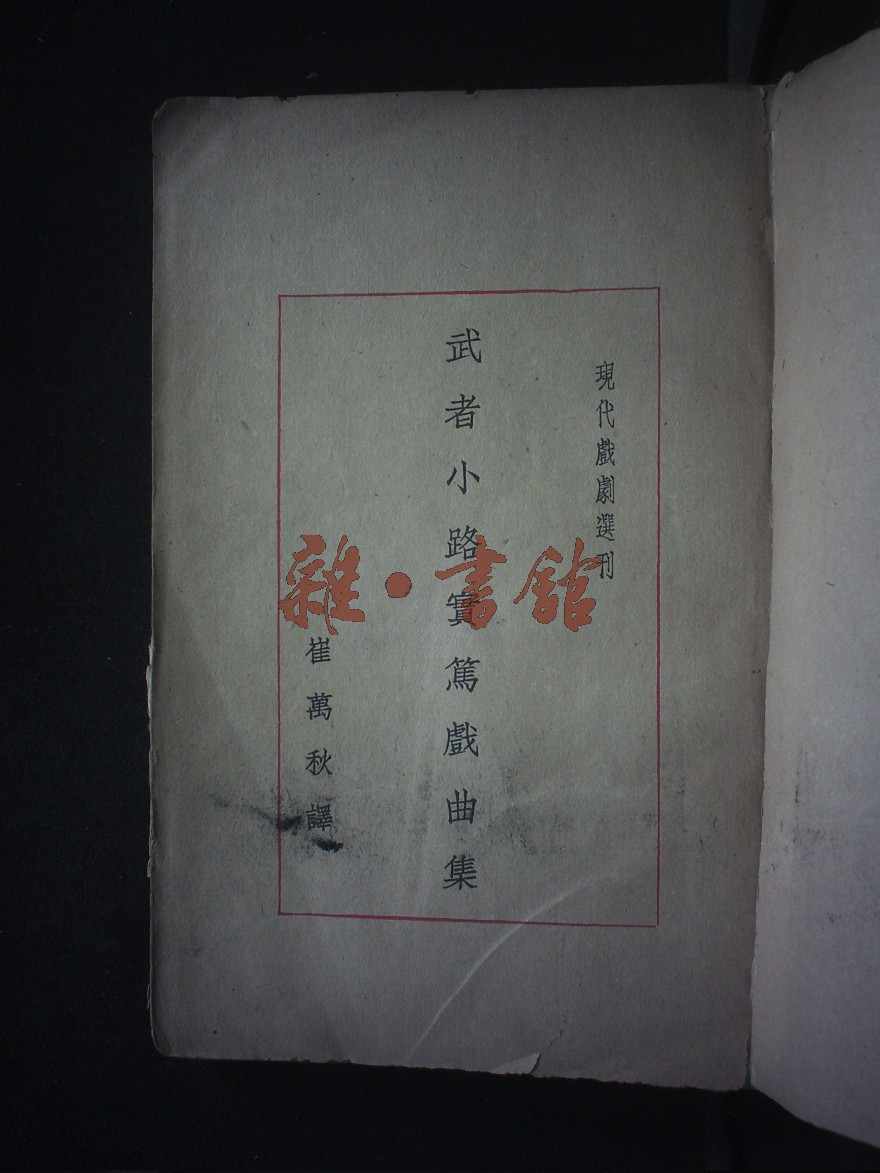 現代戲劇選刊
武者小路實篤戲曲集
崔萬秋譯
雜·書館